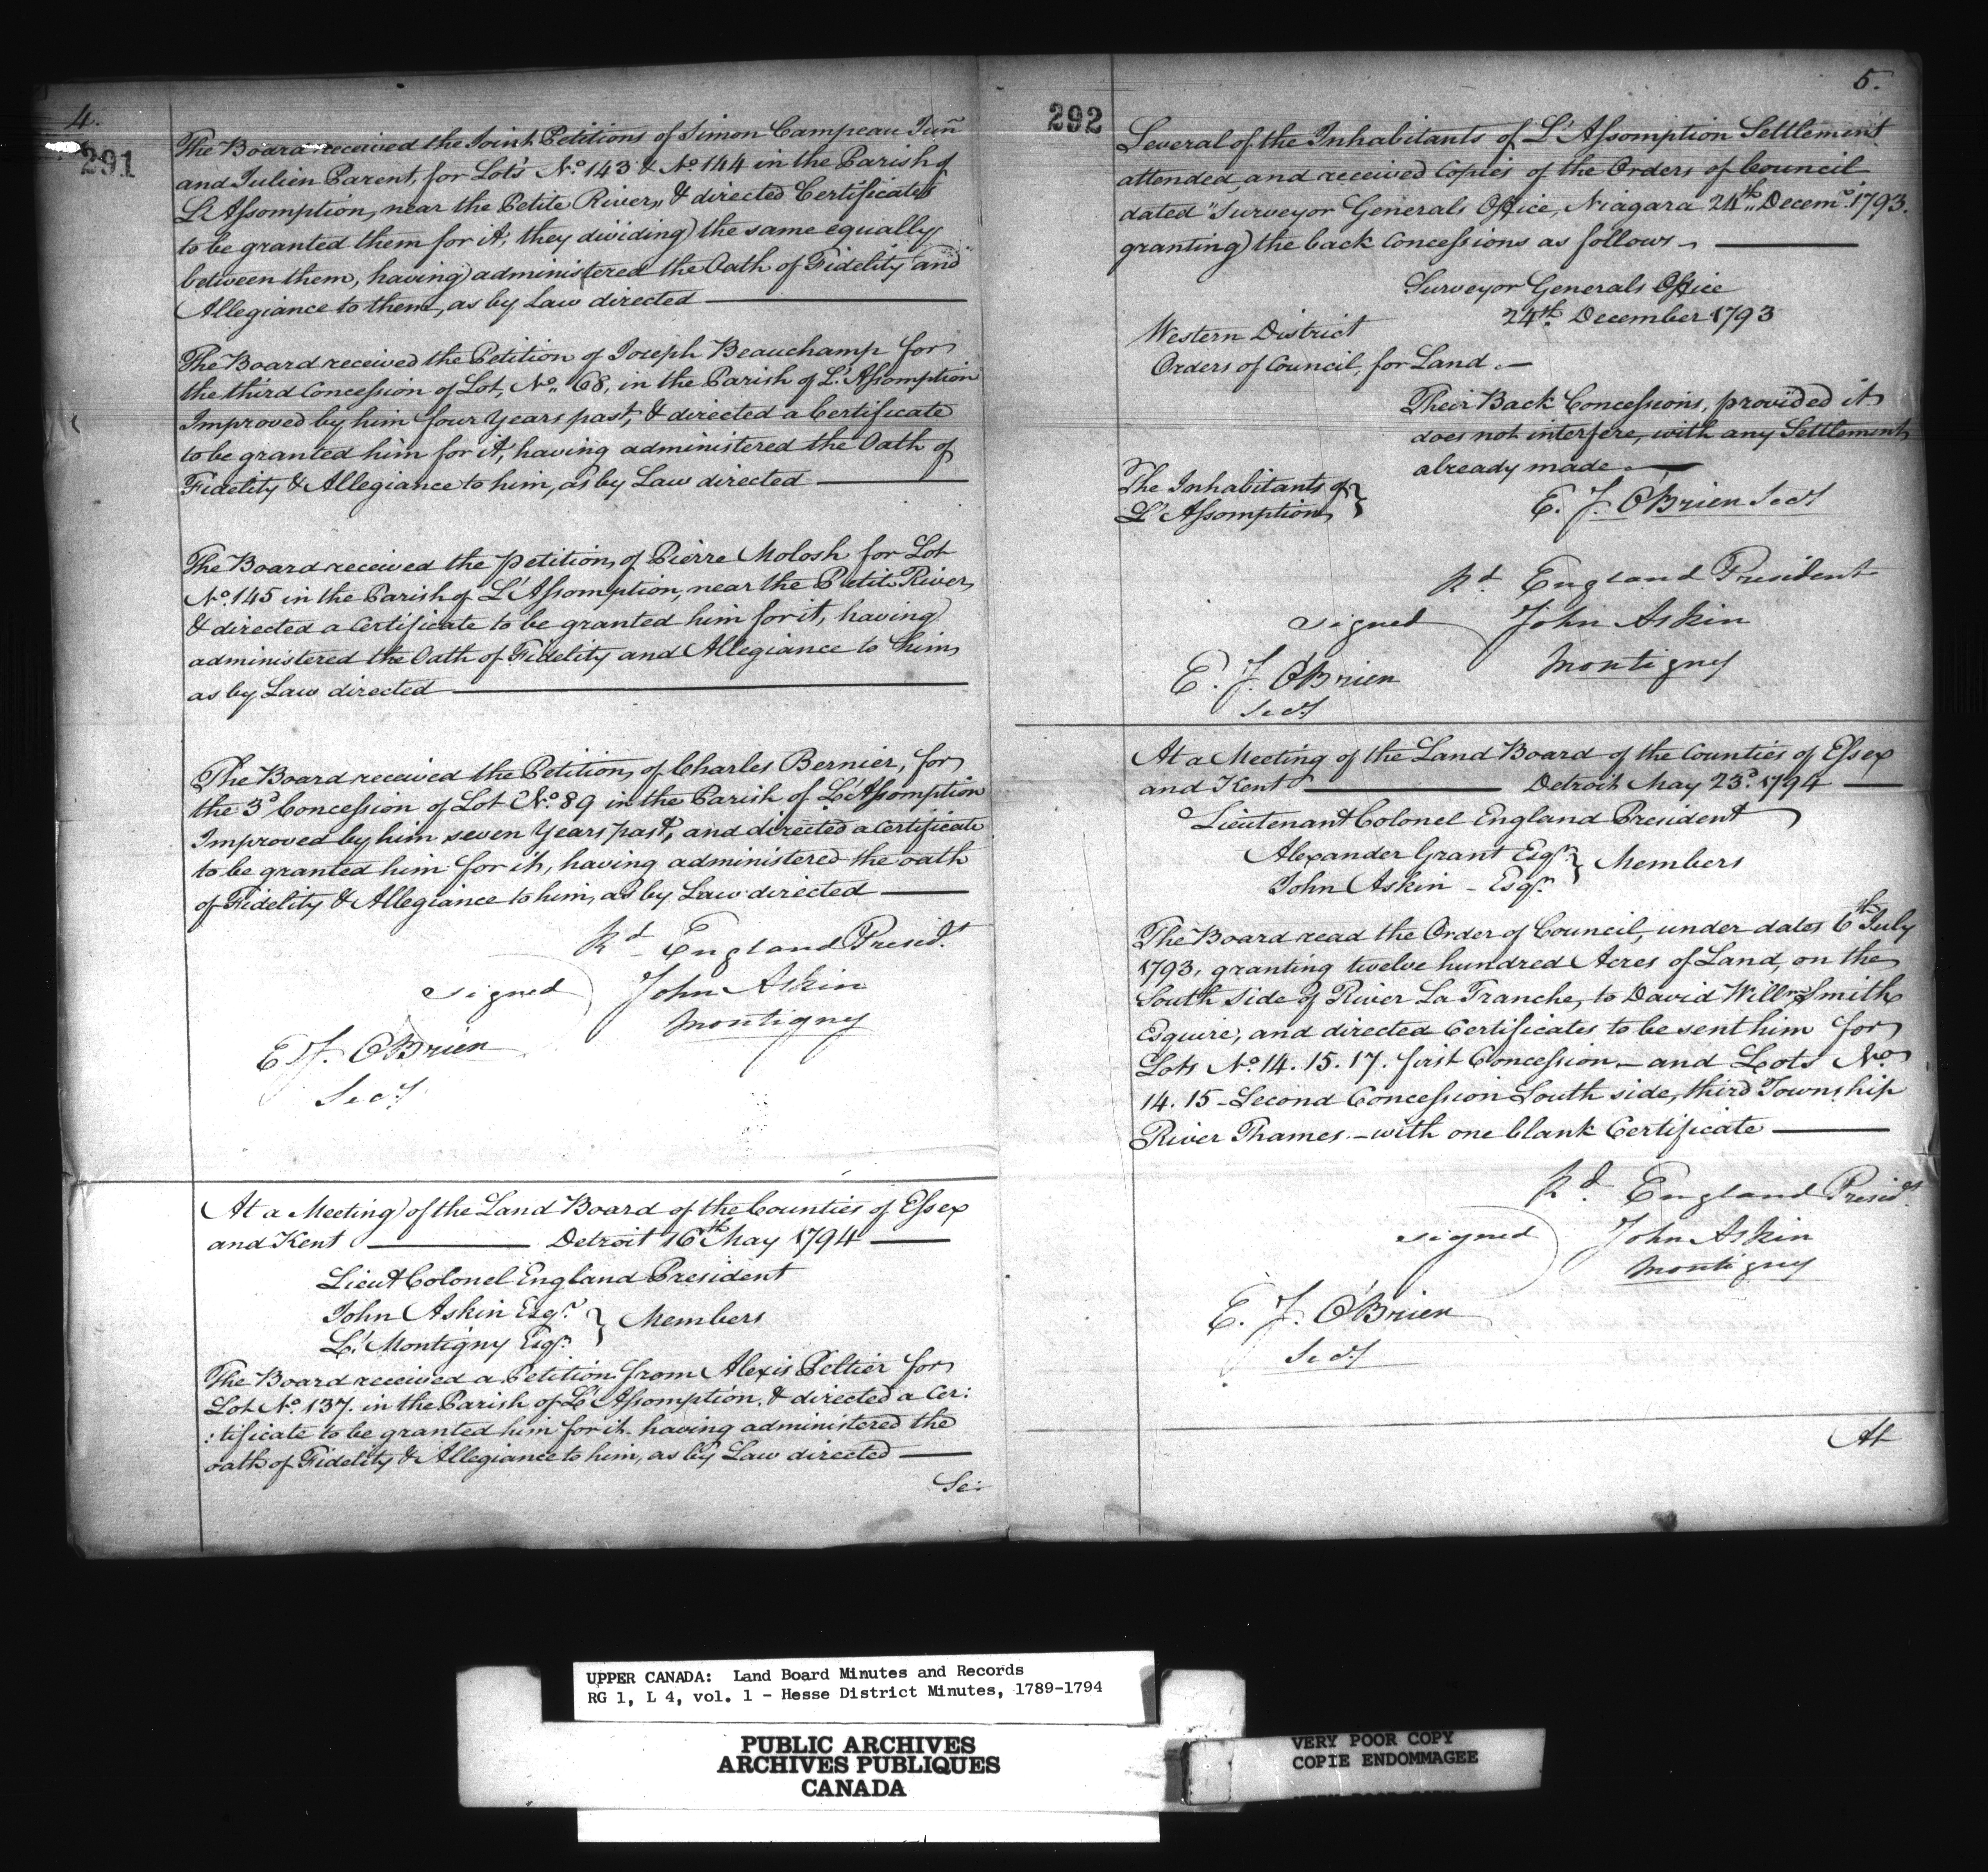 4.
291
The Board received the Joint Petitions of Simon Campeau Junr
and Julien Parent, for Lots No. 143 & No. 144 in the Parish of
L'Assomption, near the Petite River, & directed Certificates
to be granted them for it, they dividing the same equally
between them, having administered the Oath of Fidelity and
Allegiance to them, as by Law directed
The Board received the Petition of Joseph Beauchamp for
the third Concession of Lot, No. 68, in the Parish of L'Assomption
Improved by him four Years past, & directed a Certificate
to be granted him for it, having administered the Oath of
Fidelity & Allegiance to him, as by Law directed
The Board received the Petition, of Pierre Molosh for Lot
No. 145 in the Parish of L'Assomption, near the Petit River,
& directed a Certificate to be granted him for it, having
administered the Oath of Fidelity and Allegiance to him,
as by Law directed
The Board received the Petition, of Charles Bernier, for
the 3d Concession of Lot No. 89 in the Parish of L'Assomption
Improved by him seven Years past, and directed a Certificate
to be granted him for it, having administered the oath
of Fidelity & Allegiance to him, as by Law directed
Rd England Presidt
signed ) John Askin
Montigny
E. J. O'Brien
Secy
At a Meeting of the Land Board of the Counties of Essex
and Kent Detroit 16th May 1794
Lieut Colonel England President
John Askin Esqr. } Members
L. Montigny Esqr.
The Board received a Petition from Alexis Peltier for
Lot No. 137. in the Parish of L'Assomption. & directed a Cer:
:tificate to be granted him for it having administered the
oath of Fidelity & Allegiance to him, as by Law directed
Se:
5.
292
Several of the Inhabitants of L'Assomption Settlement
attended, and received Copies of the Orders of Council
dated "Surveyor Generals Office, Niagara 24th Decemr. 1793.
granting the back Concessions as follows
Surveyor Generals Office
24th. December 1793
Western District
Orders of Council, for Land
Their Back Concessions, provided it
does not interfere, with any Settlement
already made
The Inhabitants of }
L'Assomption
E. J. O'Brien Secy
Rd. England President
signed ) John Askin
Montigny
E. J. O'Brien
Secy
At a Meeting of the Land Board of the Counties of Essex
and Kent Detroit May 23d. 1794
Lieutenant Colonel England President
Alexander Grant Esqr. } Members
John Askin - Esqr.
The Board read the Order of Council, under dates 6th July
1793, granting twelve hundred Acres of Land, on the
South side of River La Tranche, to David Willm. Smith
Esquire, and directed Certificates to be sent him for
Lots No. 14. 15. 17. first Concession - and Lots No.
14. 15 - Second Concession South side, third Township
River Thames. - with one blank Certificate
Rd. England Presidt
signed ) John Askin
Montigny
E. J. O'Brien
Secy
At
UPPER CANADA: Land Board Minutes and Records
RG 1, L 4, vol. 1 - Hesse District Minutes, 1789-1794
PUBLIC ARCHIVES
ARCHIVES PUBLIQUES
CANADA
VERY POOR COPY
COPIE ENDOMMAGEE